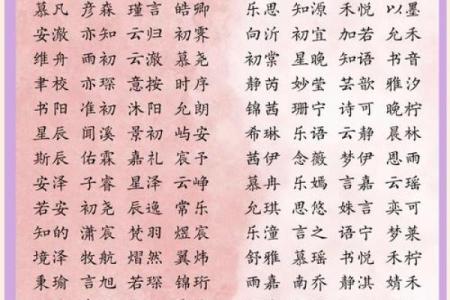 慕凡 彦森 瑾言 皓卿 乐思 知源 禾悦 以墨
安澈 亦知 云归 初霁 向沂 初宜 加若 允禾
维舟 雨初 云澈 慕尧 初棠 星晚 知舒 书音
聿校 亦琛 意按 时序 静芮 妙莹 芸歆 雅汐
书阳 准初 沐阳 允朗 锦茜 珊宁 诗可 晚柠
星辰 闻溪 景初 屿安 希琳 乐语 云静 晨林
斯辰 佑霖 嘉礼 宸予 茜伊 念薇 梦伊 思雨
安泽 子睿 星泽 云峥 慕冉 乐嫣 言嘉 云瑶
若安 初尧 辰逸 常乐 允琪 思悠 姝言 奕可
知的 潇宸 梵羽 煜宸 乐潼 言之 语宁 梦莱
境泽 牧航 熠然 翼炜 舒雅 慕瑶 书静 予柠
秉瑜 言旭 若琛 锦珩 雨嘉 南乔 悦淇 婧禾